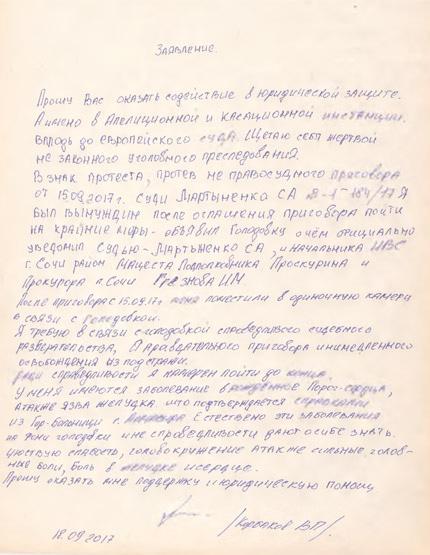 Заявление.
Прошу Вас оказать содействие в юридической защите.
А имено в Апелиционной и касационной инстанции.
вплодь до европейского суда. Щетаю себя жертвой
не законного уголовного преследования.
В знак протеста, протев не правосудного приговора
от 15.09.2017г. Суди Мартыненко СА 184/17 Я
был вынужден после оглашения приговора пойти
на крайние меры - объявил Голодовку о чём официально
уведомил Судью - Мартыненко СА, и начальника ИВС
г. Сочи район Мацеста Подполковника Проскурина и
Прокурора г. Сочи ИМ.
После приговора с 15.09.17г меня поместили в одиночную камеру
в связи с голодовкой.
Я требую в связи с голодовкой справедливого судебного
разбератеьства, оправдательного приговора и немедленного
освобождения из под стражи.
Ради справедливости я намерен пойти до конца.
У меня имеются заболевание врожденное Порог-сердца,
а также язва желудка. что подтверждается справками
из Гор-больници г. Естествено эти заболевания
на фони голодовки и не справедливости дают о себе знать.
чуствую слабость, головокружение а также сильные голов-
ные боли, боль в желудке и сердце.
Прошу оказать мне поддержку и юридическую помощь
18.09.2017 /Корольков В.П/.